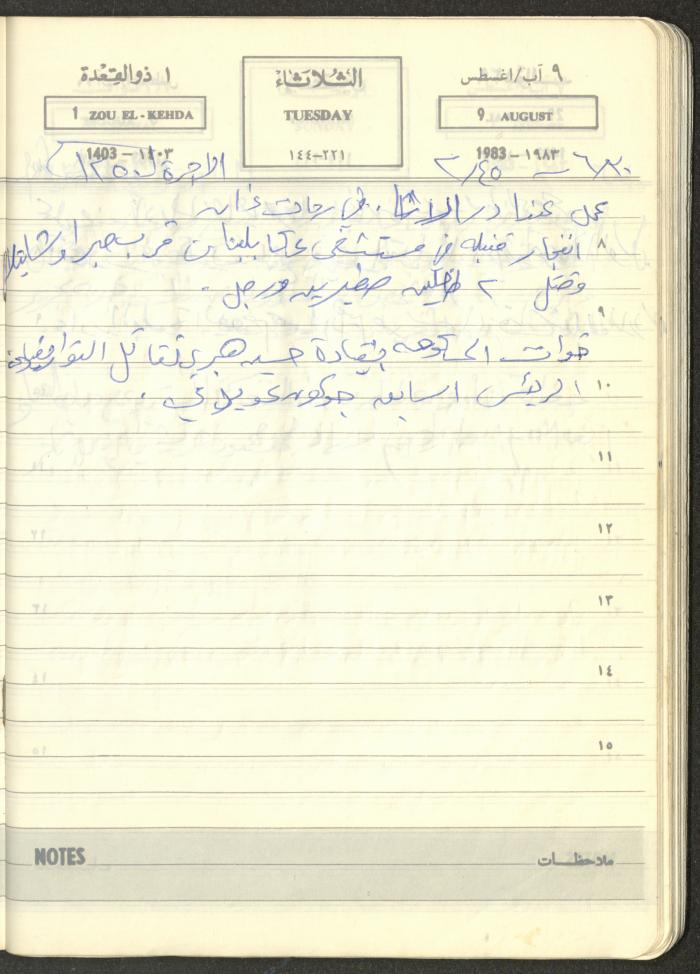 ٩ آب/اغسطس
الثلاثاء
١ ذوالقعدة
9 AUGUST
TUESDAY
1 ZOU EL-KEHDA
1983 – ١٩٨٣
١٤٤–٢٢١
1403 – ١٤٠٣
٦/٣٠ – ٢/٤٥ الاجرة ١٢٥٠
عمل عندنا في رحات
٨
انفجار قنبله في مستشفى عكا بلبنان قرب صبرا وشاتيلا
وقتل ٢ طفلين صغيرين ورجل .
٩
قوات الحكومه بقيادة حسين هبري تقاتل الثوار
١٠
الرئيس السابق جوكوني عويدي .
١١
١٢
١٣
١٤
١٥
NOTES
ملاحظات